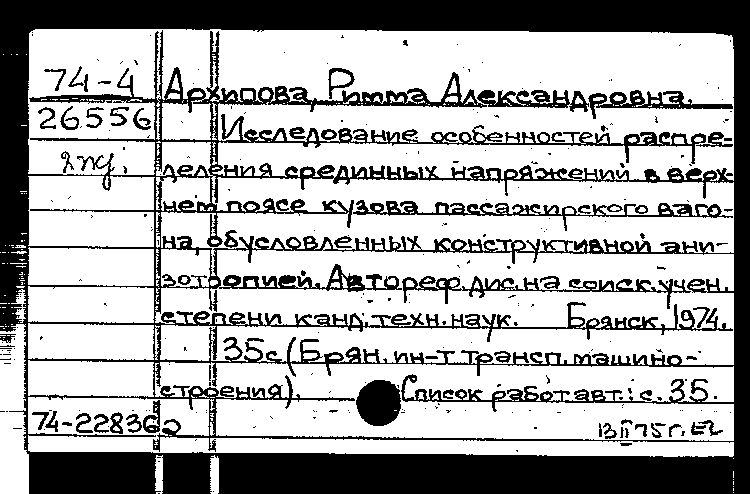 74-4 Архипова, Римма Александровна.
26556 Исследование особенностей распре-
2 деления срединных напряжений в верх-
нем поясе кузова пассажирского ваго-
на, обусловленных конструктивной ани-
зотропией. Автореф. дис. на соиск. учен.
степени канд. техн. наук. Брянск, 1974.
35с (Брян. ин-т трансп. машино-
строения). Список работ авт.: с. 35.
74-22836 13 II 75 г.